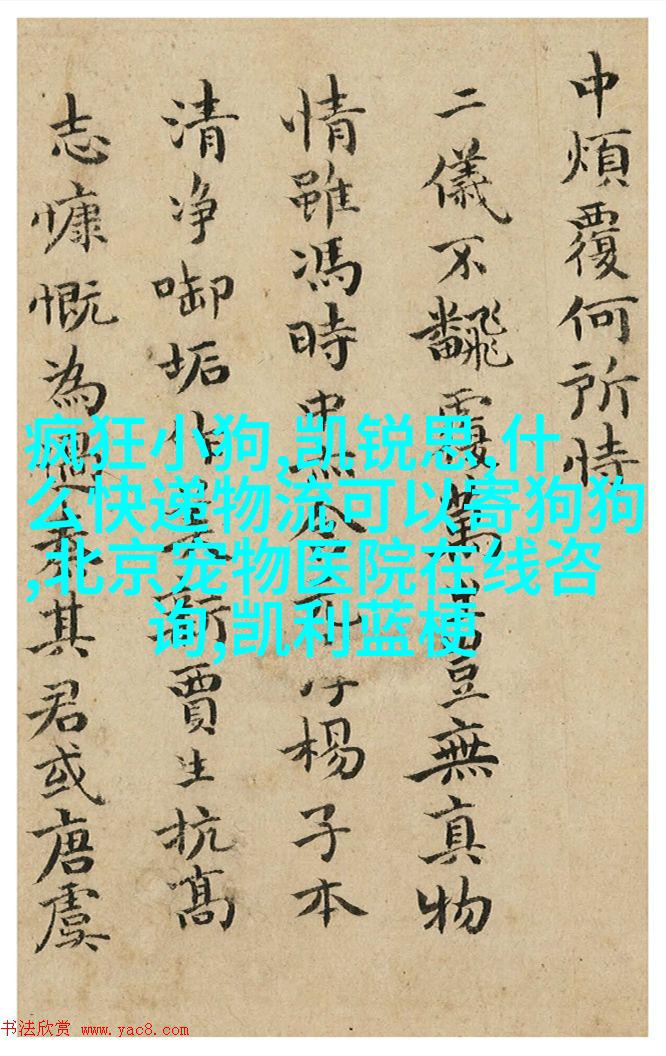 中煩覆何所恃
二儀不飜覆萬豈無真物
情雖馮時楊子本
清净啣垢作賈生抗髙
志慷慨為其君或唐虞
疯狂小狗,凯锐思,什
么快递物流可以寄狗狗
,北京宠物医院在线咨
询,凯利蓝梗
书法欣赏 www.yac8.com